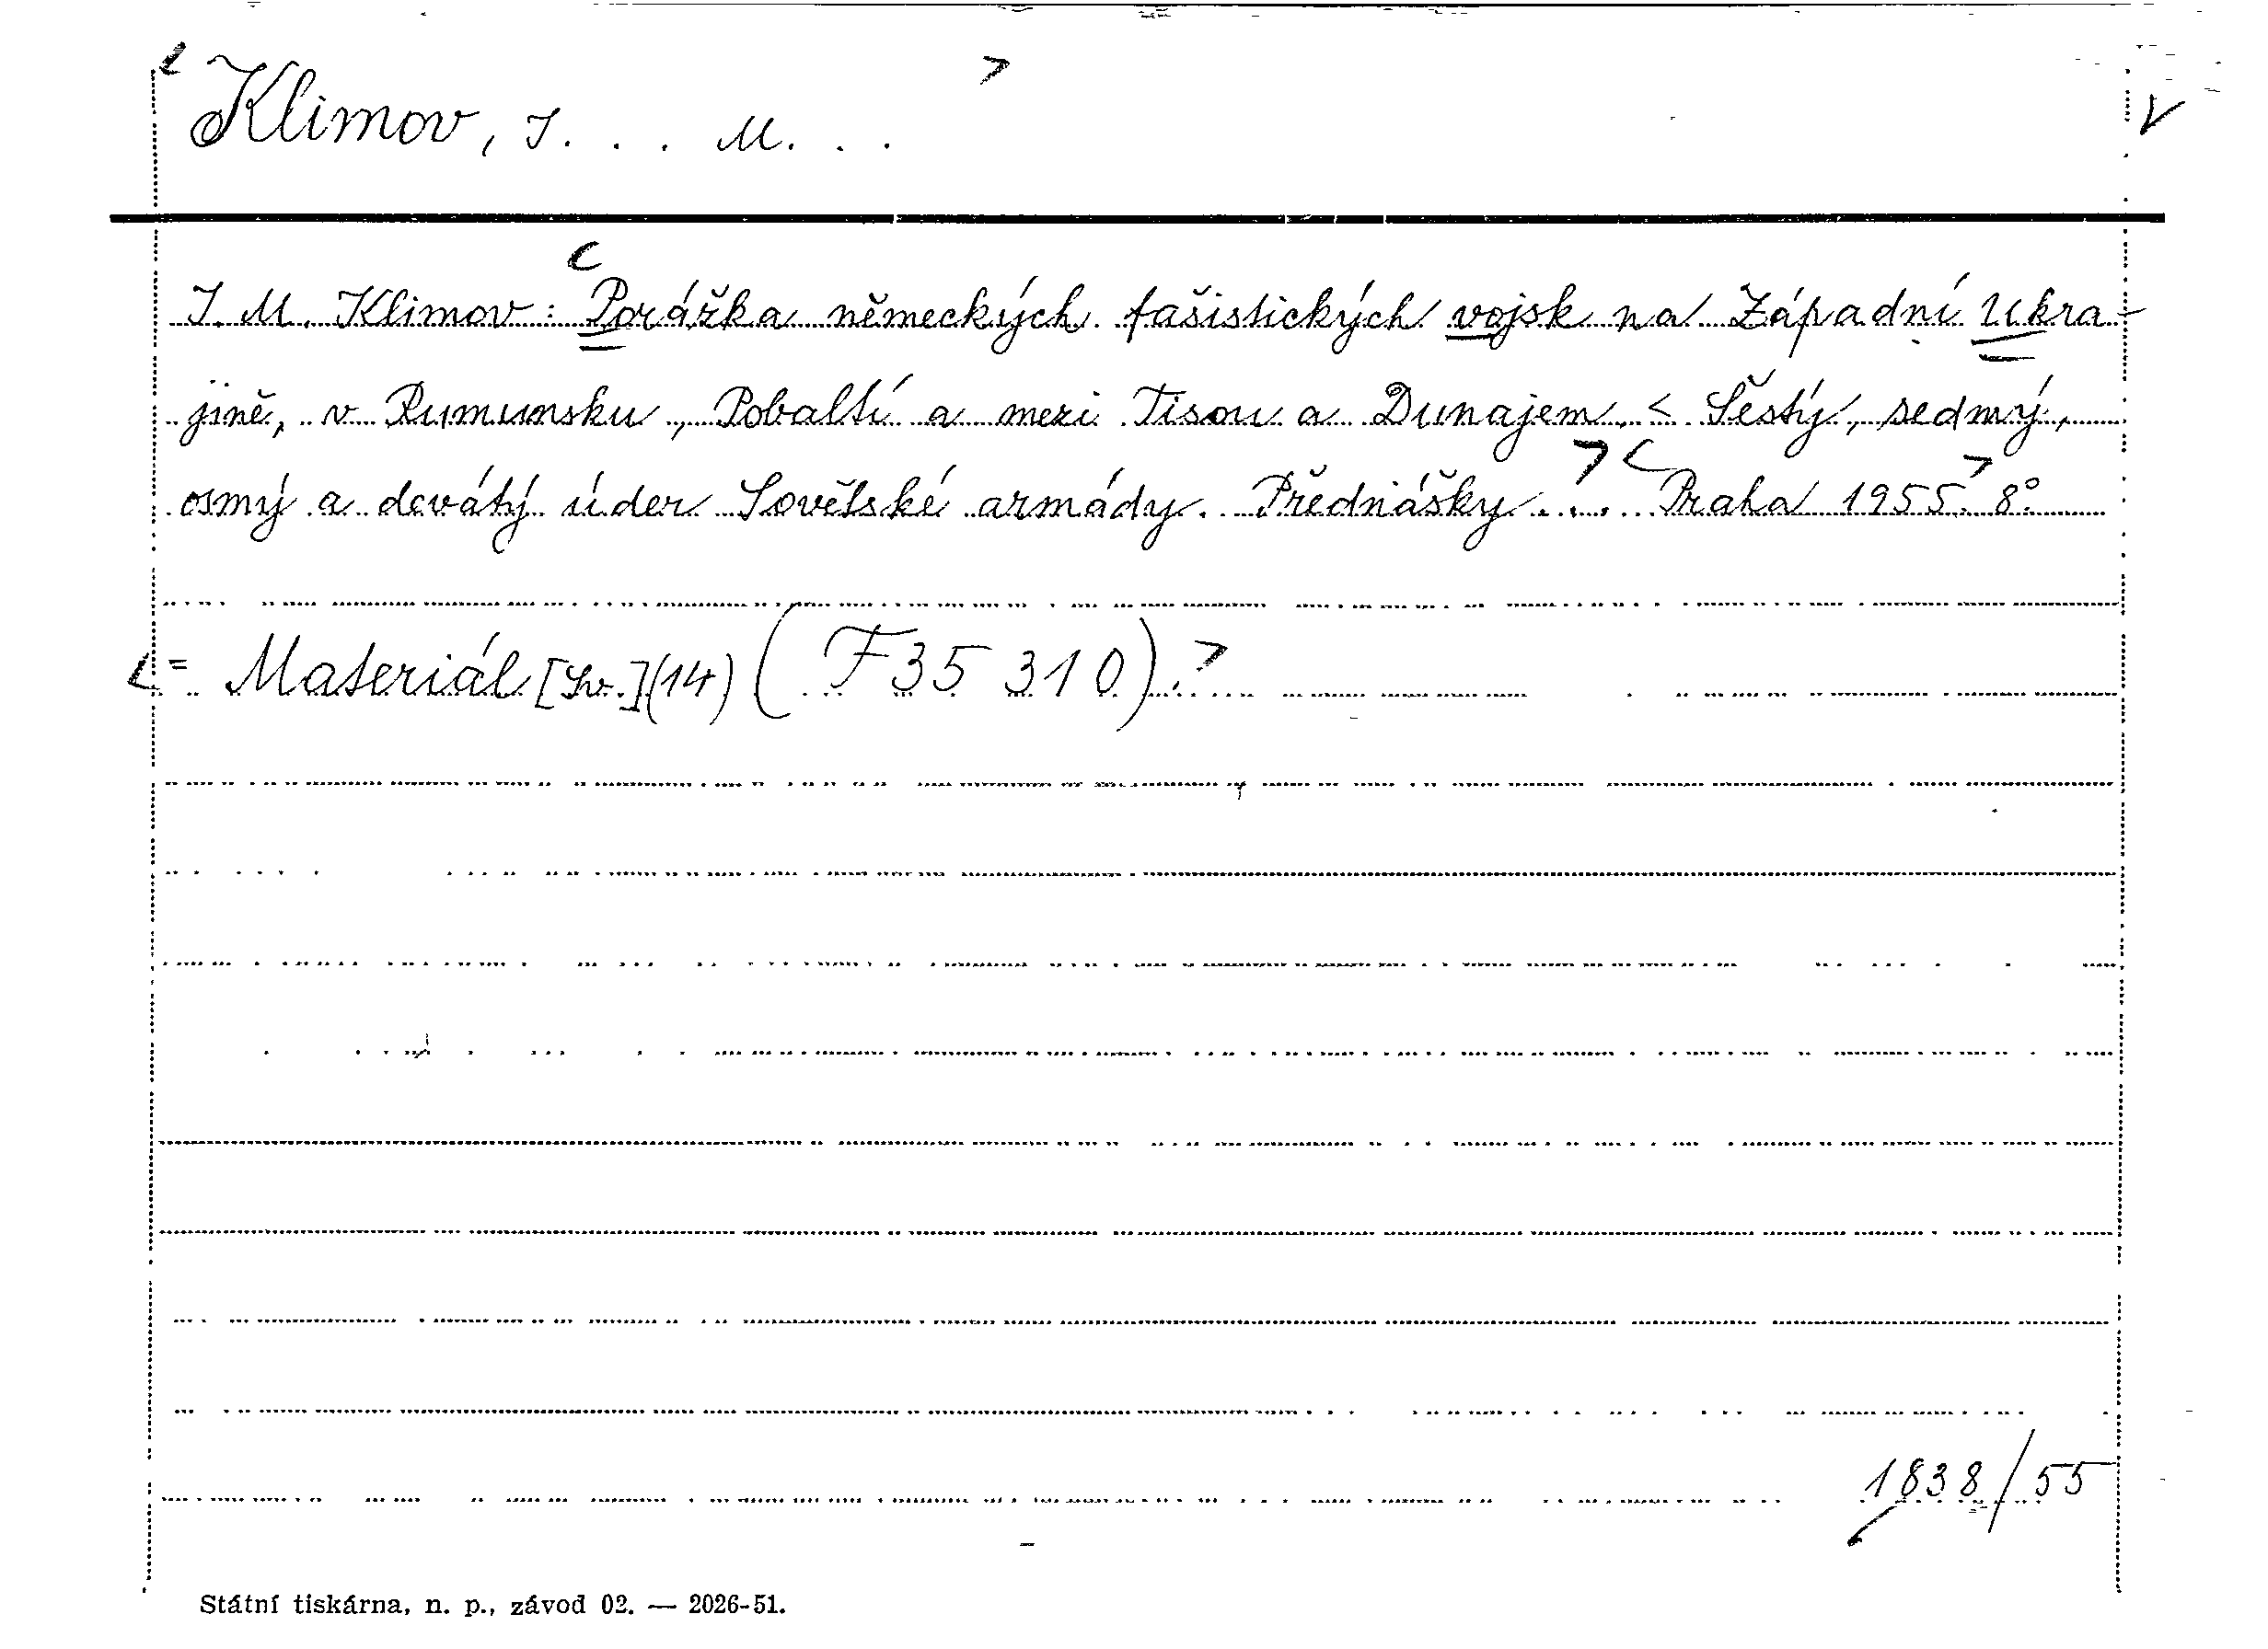 Klimov, I. . . M. . .
V
I. M. Klimov: Porážka německých fašistických vojsk na Západní Ukra-
jině, v Rumunsku, Pobaltí a mezi Tisou a Dunajem. < Šestý, sedmý,
osmý a devátý úder Sovětské armády. Přednášky . . . Praha 1955. 8°
= Materiál [Sv.] (14) (F 35 310).
1838/55
Státní tiskárna, n. p., závod 02. — 2026-51.